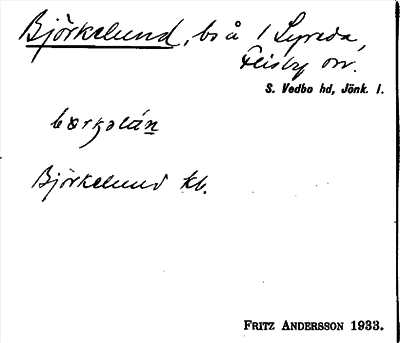 Björkelund, bs å 1 Lyreda,
Flisby sn.
S. Vedbo hd, Jönk. l.
Björkelund kb.
FRITZ ANDERSSON 1933.